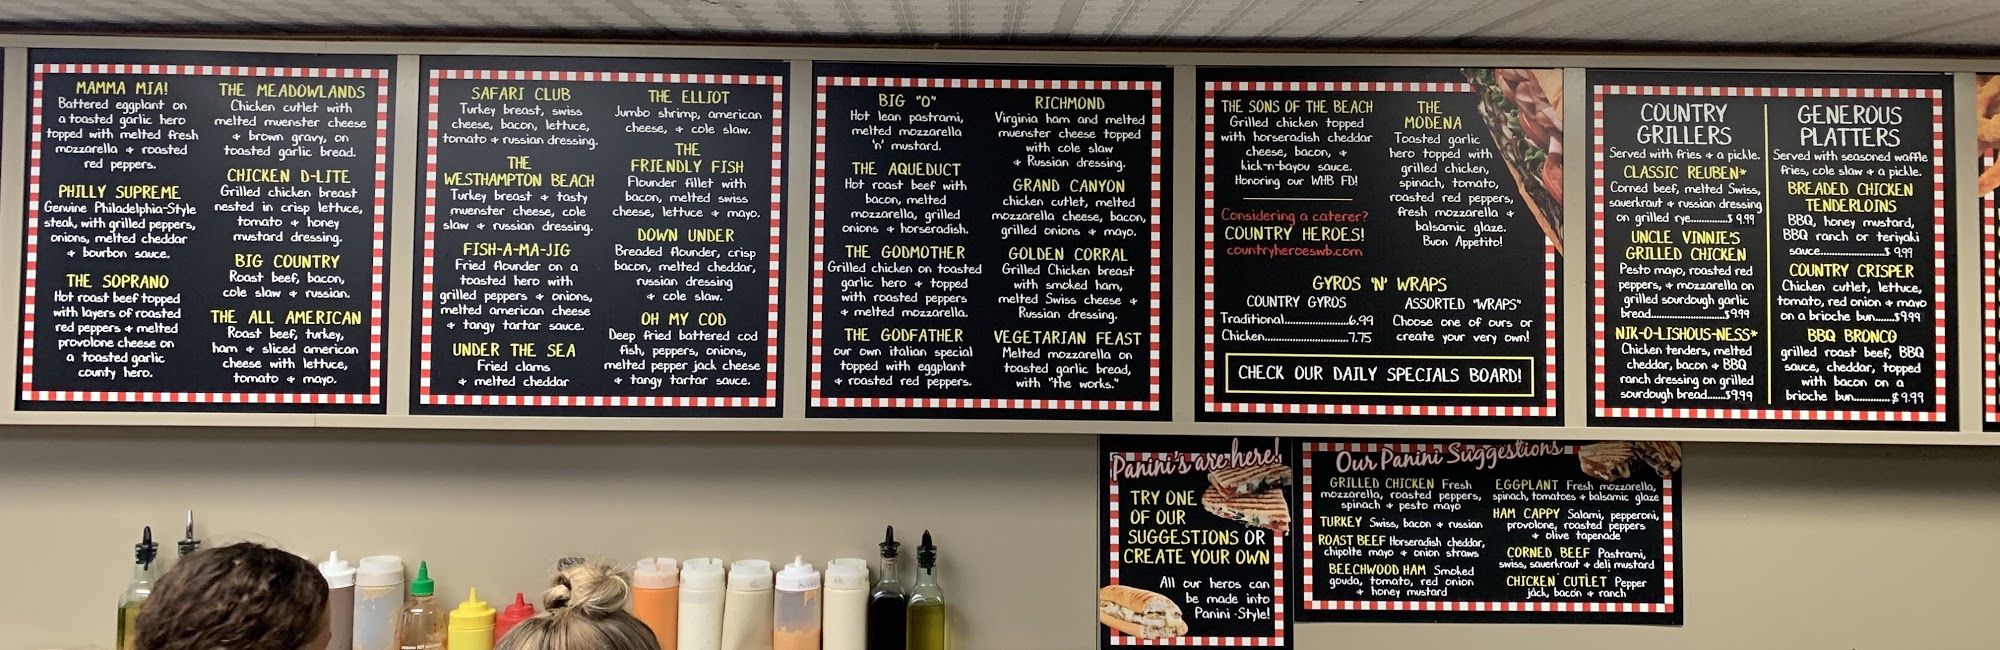 MAMMA MIA!
Battered eggplant on
a toasted garlic hero
topped with melted fresh
mozzarella & roasted
red peppers.
PHILLY SUPREME
Genuine Philadelphia-Style
steak, with grilled peppers,
onions, melted cheddar
& bourbon sauce.
THE SOPRANO
Hot roast beef topped
with layers of roasted
red peppers & melted
provolone cheese on
a toasted garlic
county hero.
THE MEADOWLANDS
Chicken cutlet with
melted muenster cheese
& brown gravy, on
toasted garlic bread.
CHICKEN D-LITE
Grilled chicken breast
nested in crisp lettuce,
tomato & honey
mustard dressing.
BIG COUNTRY
Roast beef, bacon,
cole slaw & russian.
THE ALL AMERICAN
Roast beef, turkey,
ham & sliced american
cheese with lettuce,
tomato & mayo.
SAFARI CLUB
Turkey breast, swiss
cheese, bacon, lettuce,
tomato & russian dressing.
THE
WESTHAMPTON BEACH
Turkey breast & tasty
muenster cheese, cole
slaw & russian dressing.
FISH-A-MA-JIG
Fried flounder on a
toasted hero with
grilled peppers & onions,
melted american cheese
& tangy tartar sauce.
UNDER THE SEA
Fried clams
& melted cheddar
THE ELLIOT
Jumbo shrimp, american
cheese, & cole slaw.
THE
FRIENDLY FISH
Flounder fillet with
bacon, melted swiss
cheese, lettuce & mayo.
DOWN UNDER
Breaded flounder, crisp
bacon, melted cheddar,
russian dressing
& cole slaw.
OH MY COD
Deep fried battered cod
fish, peppers, onions,
melted pepper jack cheese
& tangy tartar sauce.
BIG "O"
Hot lean pastrami,
melted mozzarella
'n' mustard.
THE AQUEDUCT
Hot roast beef with
bacon, melted
mozzarella, grilled
onions & horseradish.
THE GODMOTHER
Grilled chicken on toasted
garlic hero & topped
with roasted peppers
& melted mozzarella.
THE GODFATHER
our own italian special
topped with eggplant
& roasted red peppers.
RICHMOND
Virginia ham and melted
muenster cheese topped
with cole slaw
& Russian dressing.
GRAND CANYON
chicken cutlet, melted
mozzarella cheese, bacon,
grilled onions & mayo.
GOLDEN CORRAL
Grilled Chicken breast
with smoked ham,
melted Swiss cheese &
Russian dressing.
VEGETARIAN FEAST
Melted mozzarella on
toasted garlic bread,
with "the works."
THE SONS OF THE BEACH
Grilled chicken topped
with horseradish cheddar
cheese, bacon, &
kick-n-bayou sauce.
Honoring our WHB FD!
Considering a caterer?
COUNTRY HEROES!
countryheroeswb.com
THE
MODENA
Toasted garlic
hero topped with
grilled chicken,
spinach, tomato,
roasted red peppers,
fresh mozzarella &
balsamic glaze.
Buon Appetito!
GYROS 'N' WRAPS
COUNTRY GYROS
Traditional........................6.99
Chicken...............................7.75
ASSORTED "WRAPS"
Choose one of ours or
create your very own!
CHECK OUR DAILY SPECIALS BOARD!
COUNTRY
GRILLERS
Served with fries & a pickle.
CLASSIC REUBEN*
Corned beef, melted Swiss,
sauerkraut & russian dressing
on grilled rye..............$ 9.99
UNCLE VINNIE'S
GRILLED CHICKEN
Pesto mayo, roasted red
peppers, & mozzarella on
grilled sourdough garlic
bread.............................$9.99
NIK-O-LISHOUS-NESS*
Chicken tenders, melted
cheddar, bacon & BBQ
ranch dressing on grilled
sourdough bread......$9.99
GENEROUS
PLATTERS
Served with seasoned waffle
fries, cole slaw & a pickle.
BREADED CHICKEN
TENDERLOINS
BBQ, honey mustard,
BBQ ranch or teriyaki
sauce........................$ 9.99
COUNTRY CRISPER
Chicken cutlet, lettuce,
tomato, red onion & mayo
on a brioche bun.......$9.99
BBQ BRONCO
grilled roast beef, BBQ
sauce, cheddar, topped
with bacon on a
brioche bun.............$9.99
Panini's are here!
TRY ONE
OF OUR
SUGGESTIONS OR
CREATE YOUR OWN
All our heros can
be made into
Panini-Style!
Our Panini Suggestions
GRILLED CHICKEN Fresh
mozzarella, roasted peppers,
spinach & pesto mayo
TURKEY Swiss, bacon & russian
ROAST BEEF Horseradish cheddar,
chipolte mayo & onion straws
BEECHWOOD HAM Smoked
gouda, tomato, red onion
& honey mustard
EGGPLANT Fresh mozzarella,
spinach, tomatoes & balsamic glaze
HAM CAPPY Salami, pepperoni,
provolone, roasted peppers
& olive tapenade
CORNED BEEF Pastrami,
swiss, sauerkraut & deli mustard
CHICKEN CUTLET Pepper
jack, bacon & ranch